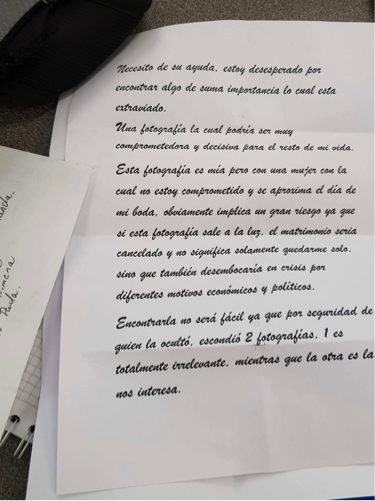 Necesito de su ayuda, estoy desesperado por
encontrar algo de suma importancia lo cual esta
extraviado.
Una fotografía la cual podría ser muy
comprometedora y decisiva para el resto de mi vida.
Esta fotografía es mía pero con una mujer con la
cual no estoy comprometido y se aproxima el día de
mi boda, obviamente implica un gran riesgo ya que
si esta fotografía sale a la luz, el matrimonio sería
cancelado y no significa solamente quedarme solo,
sino que también desembocaría en crisis por
diferentes motivos económicos y políticos.
Encontrarla no será fácil ya que por seguridad de
quien la ocultó, escondió 2 fotografías, 1 es
totalmente irrelevante, mientras que la otra es la
nos interesa.
Paula.